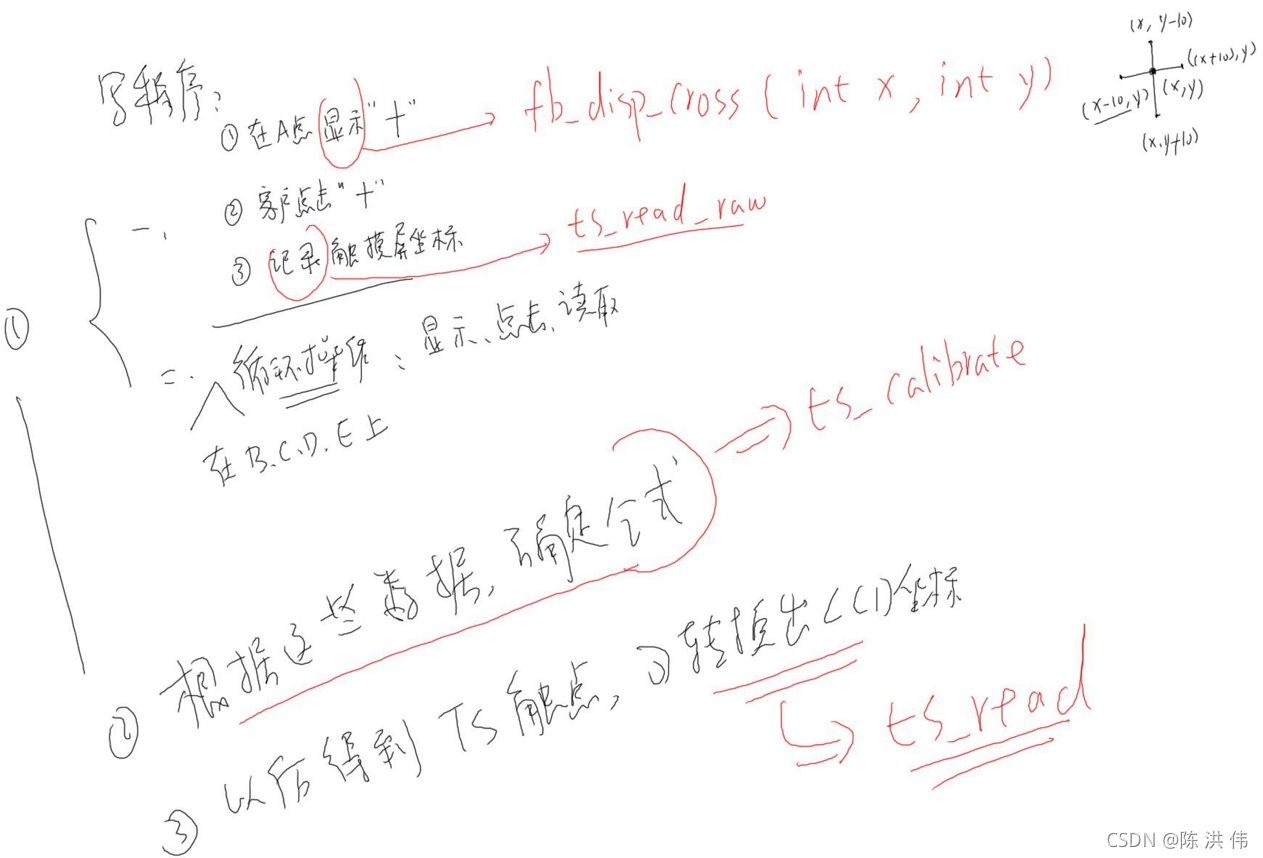 写程序:
① 在A点显示"十" → fb_disp_cross(int x, int y)
(x, y-10)
((x+10), y)
(x-10, y)
(x, y)
(x, y+10)
② 客户点击"十"
一.
③ 记录触摸屏坐标 → ts_read_raw
①
二. 循环操作: 显示、点击、读取
在B.C.D.E上
② 根据这些数据, 确定公式 ⇒ ts_calibrate
③ 以后得到TS触点, 可转换出LCD坐标
ts_read
CSDN @陈 洪 伟